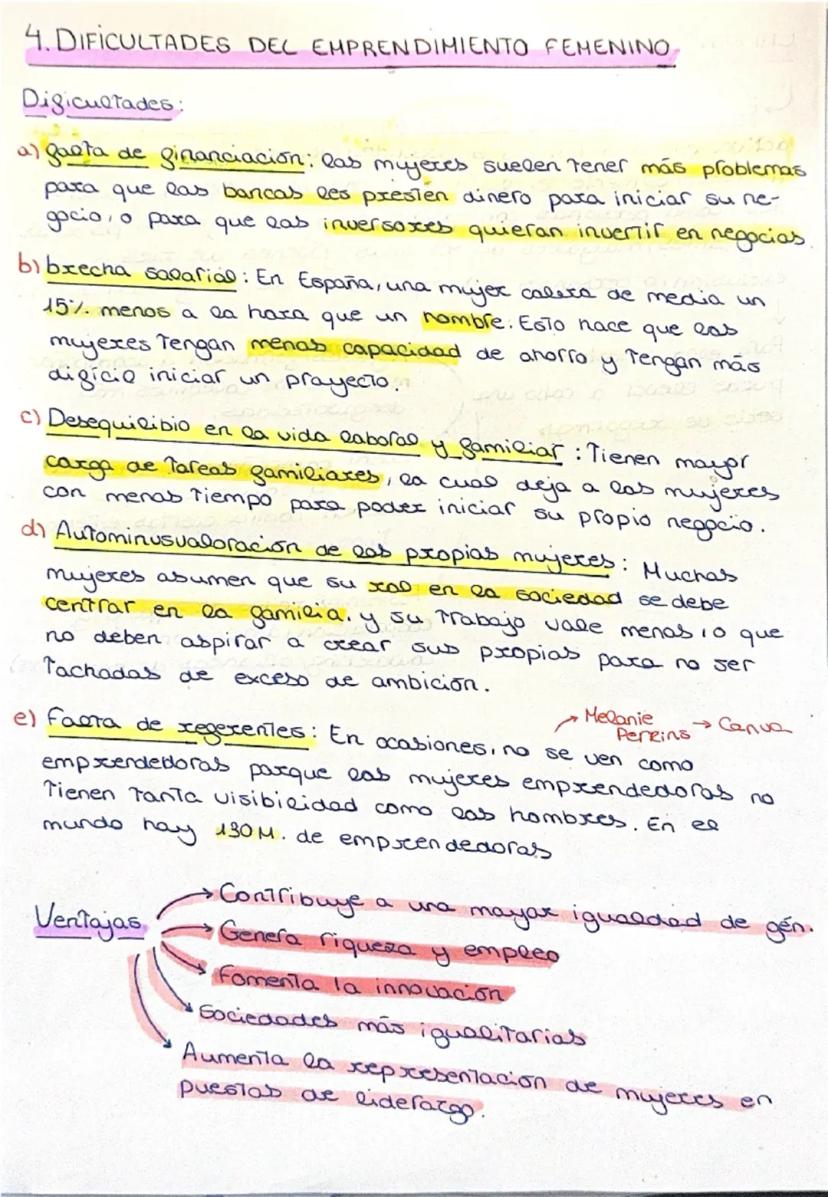 4. DIFICULTADES DEL EMPRENDIMIENTO FEMENINO.
Dificultades:
a) falta de financiación: las mujeres suelen tener más problemas
para que las bancas les presten dinero para iniciar su ne-
gocio, o para que las inversores quieran invertir en negocias.
b) brecha salarial: En España, una mujer calera de media un
15% menos a la hora que un hombre. Esto hace que las
mujeres tengan menos capacidad de ahorro y tengan más
difícil iniciar un proyecto.
c) Desequilibio en la vida laboral y familiar: Tienen mayor
carga de tareas familiares, la cual deja a las mujeres
con menos tiempo para poder iniciar su propio negocio.
d) Autominusvaloración de las propias mujeres: Muchas
mujeres asumen que su rol en la sociedad se debe
centrar en la familia. y su trabajo vale menos, o que
no deben aspirar a crear sus propias para no ser
tachadas de exceso de ambición.
e) Falta de referentes: En ocasiones, no se ven como
→ Melanie Perkins → Canva
emprendedoras porque las mujeres emprendedoras no
tienen tanta visibilidad como los hombres. En el
mundo hay 130M. de emprendedoras
Ventajas
→ Contribuye a una mayor igualdad de gén.
→ Genera riqueza y empleo
→ Fomenta la innovación
→ Sociedades más igualitarias
→ Aumenta la representación de mujeres en
puestos de liderazgo.